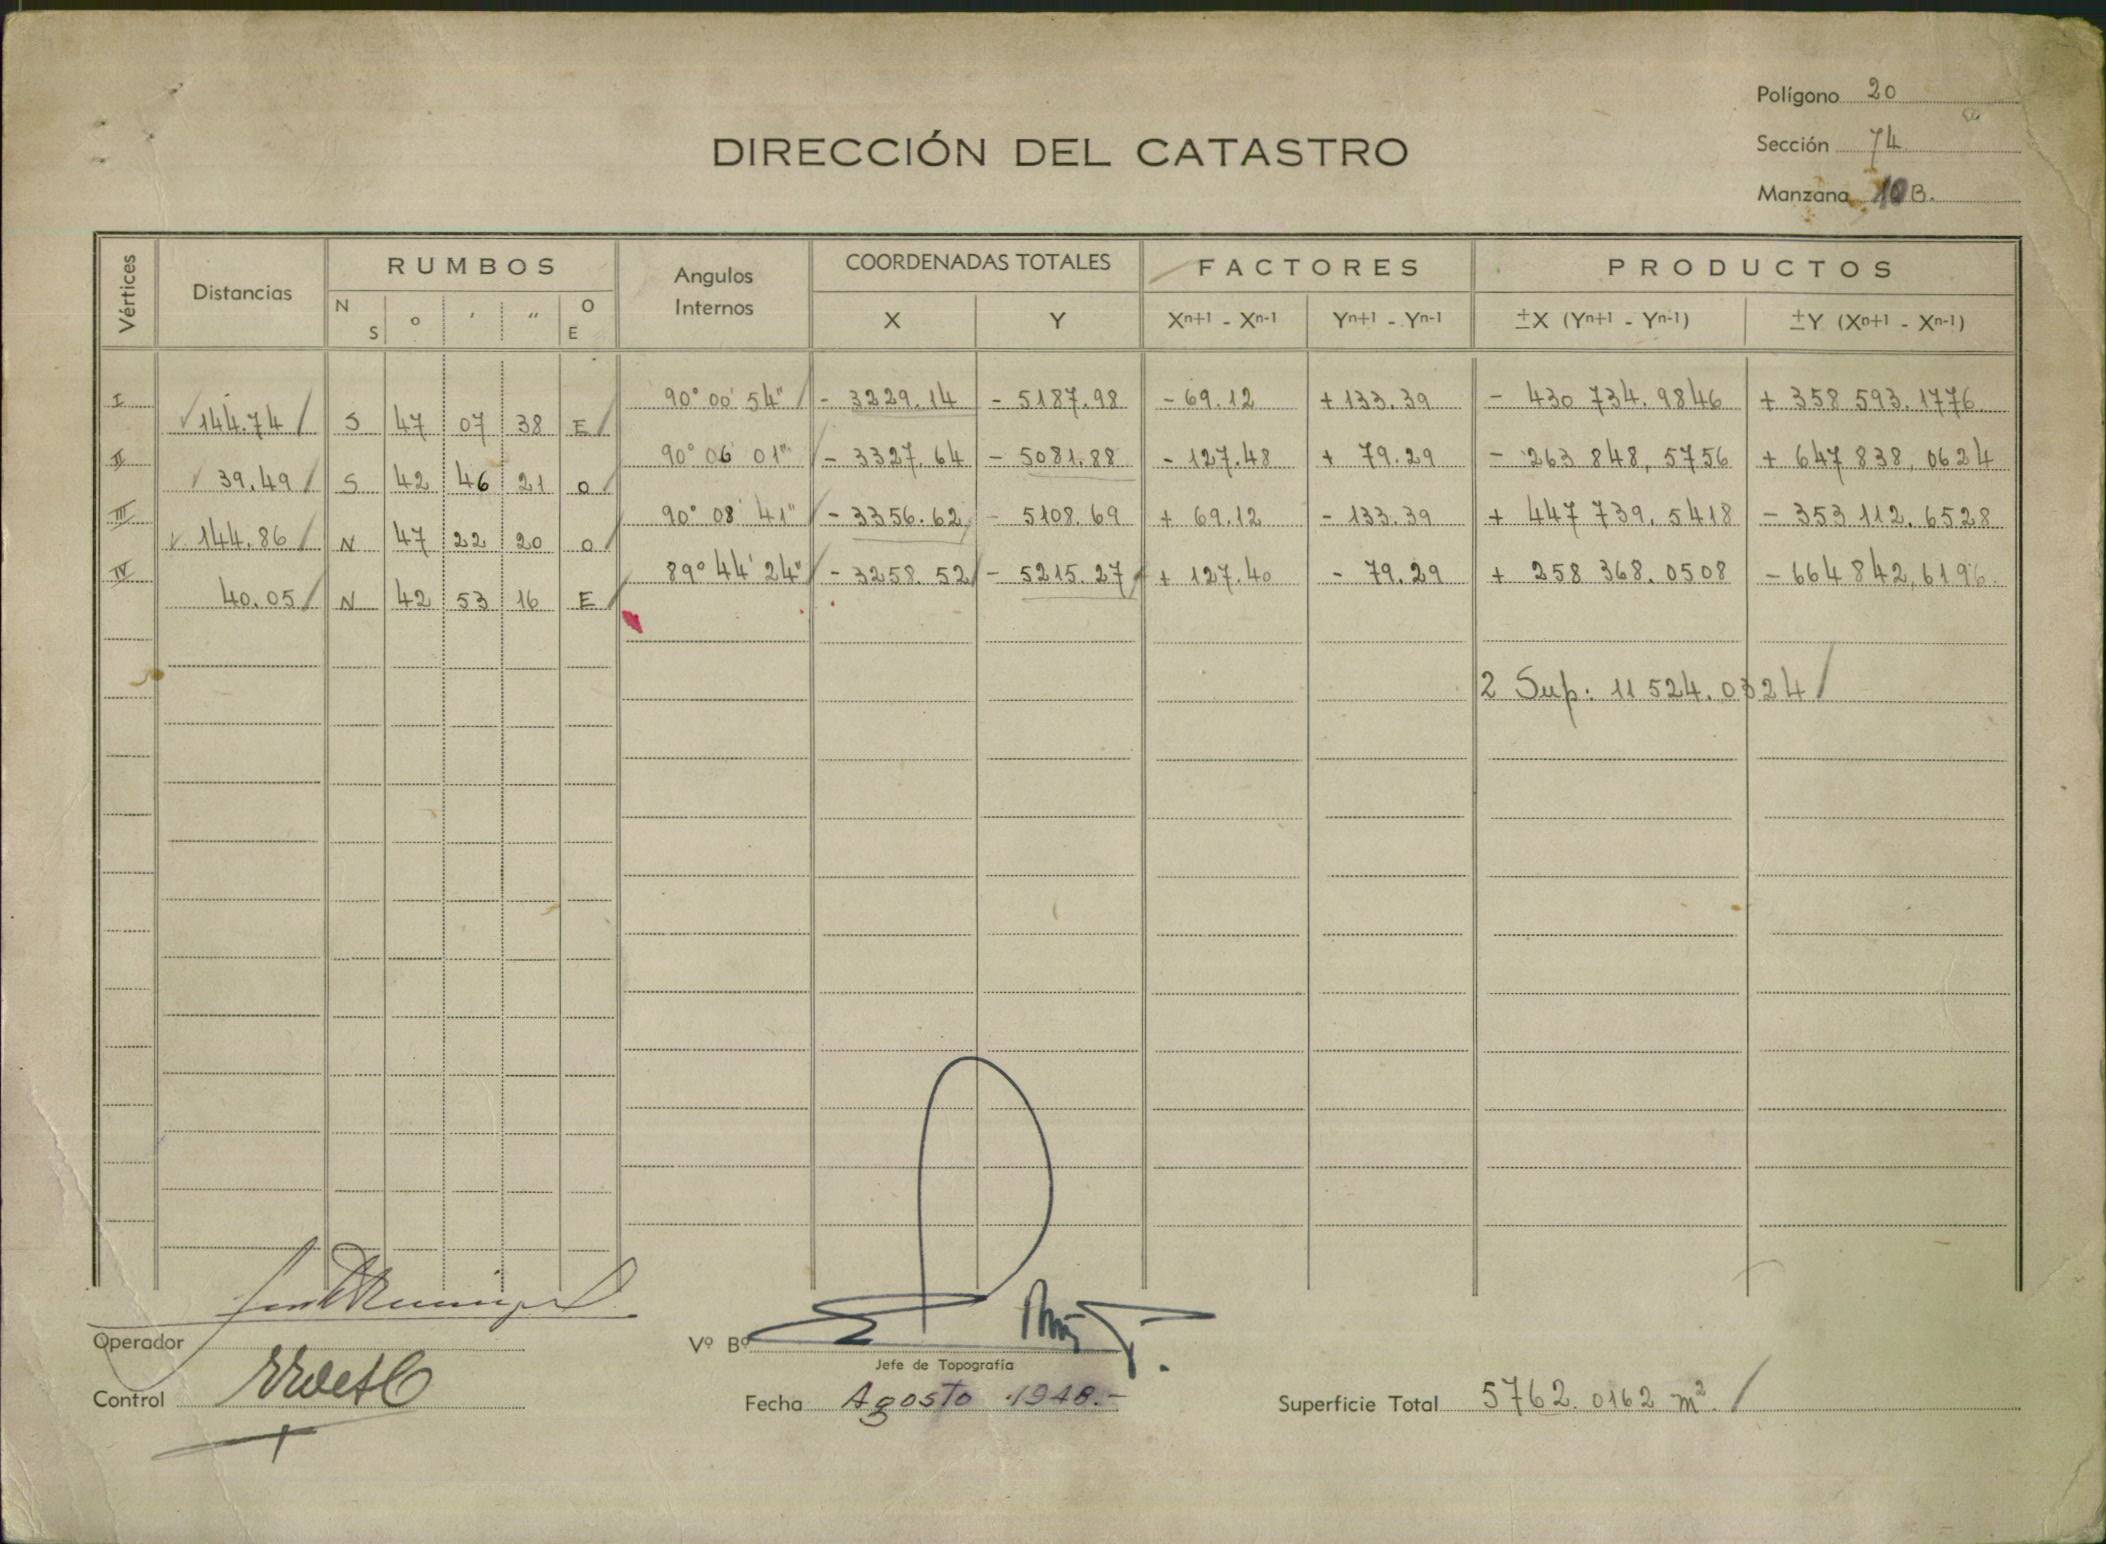 Polígono 20
DIRECCIÓN DEL CATASTRO
Sección 74
Manzana 10 B.
Vértices
Distancias
RUMBOS
N S ° ' " O E
Angulos Internos
COORDENADAS TOTALES
X Y
FACTORES
Xn+1 - Xn-1 Yn+1 - Yn-1
PRODUCTOS
±X (Yn+1 - Yn-1) ±Y (Xn+1 - Xn-1)
I 90° 00' 54" - 3229.14 - 5187.98 - 69.12 + 133.39 - 430 734.9846 + 358 593.1776
144.74 S 47 07 38 E
II 90° 06' 01" - 3327.64 - 5081.88 - 127.48 + 79.29 - 263 848,5756 + 647 838,0624
39.49 S 42 46 21 O
III 90° 08' 41" - 3356.62 - 5108.69 + 69.12 - 133.39 + 447 739.5418 - 353 112.6528
144.86 N 47 22 20 O
IV 89° 44' 24" - 3258.52 - 5215.27 + 127.40 - 79.29 + 258 368.0508 - 664 842,6196
40.05 N 42 53 16 E
2 Sup: 11 524.0324
Operador
Vº Bº
Jefe de Topografía
Control
Fecha Agosto 1948.-
Superficie Total 5762.0162 m².